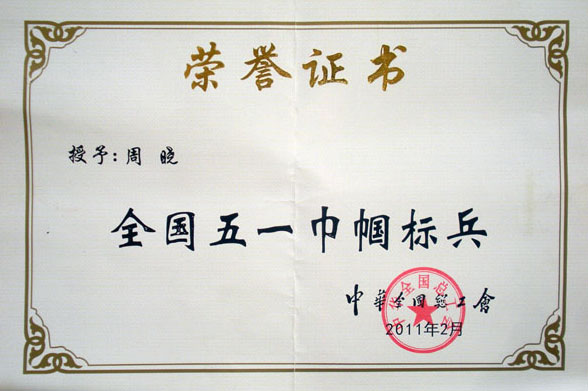 荣誉证书
授予：周 晓
全国五一巾帼标兵
中華全国總工會
中华全国总工会
2011年2月